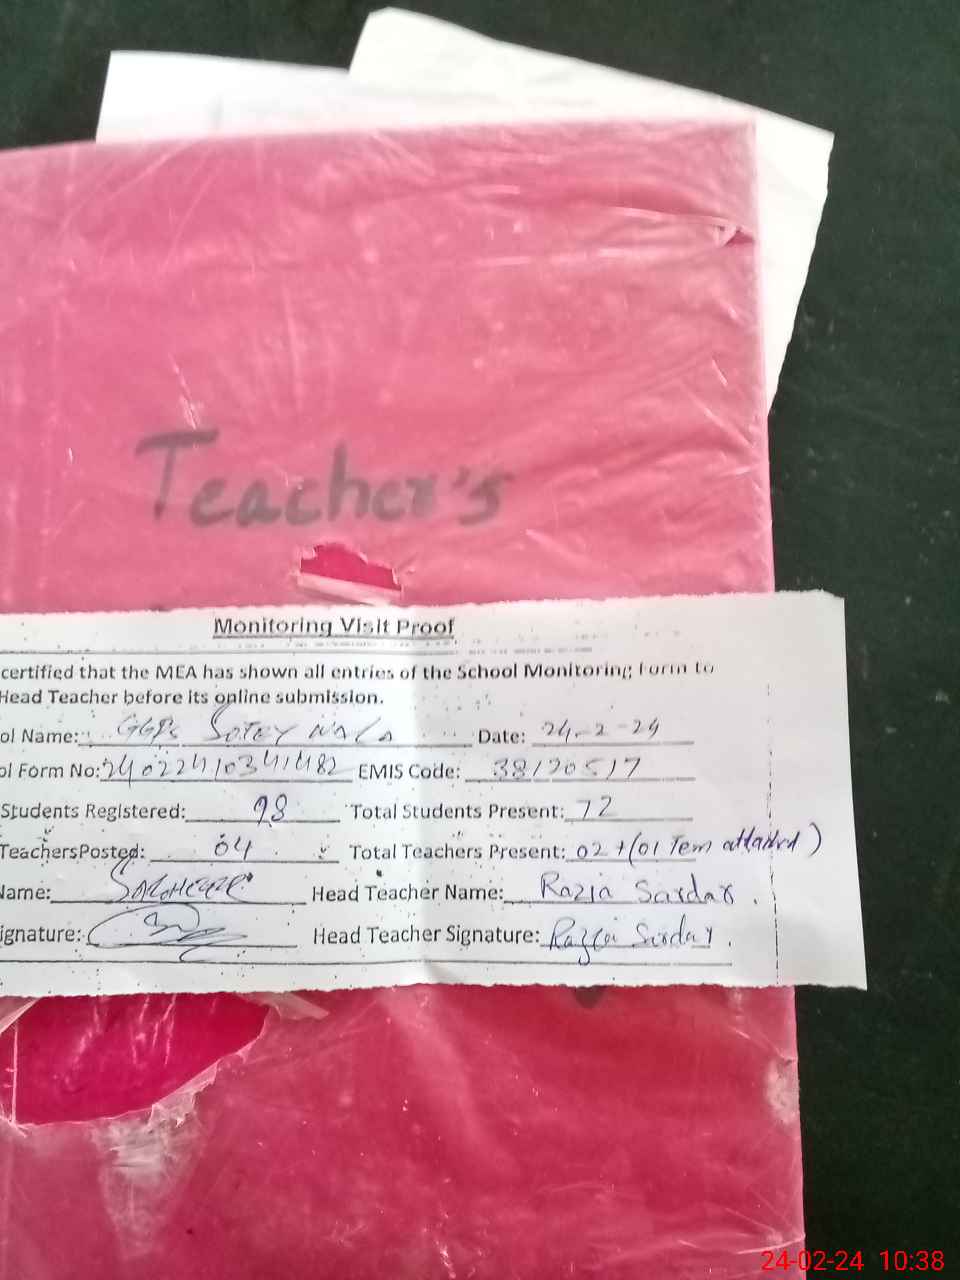 Teacher's
Monitoring Visit Proof
certified that the MEA has shown all entries of the School Monitoring Form to
Head Teacher before its online submission.
ol Name: GGPS SOTEY WALA Date: 24-2-24
ol Form No: EMIS Code: 38120517
Students Registered: 98 Total Students Present: 72
TeachersPosted: 04 Total Teachers Present: 02 + (01 Tem attached)
Name: Head Teacher Name: Razia Sardar.
ignature: Head Teacher Signature: Razia Sardar.
24-02-24 10:38